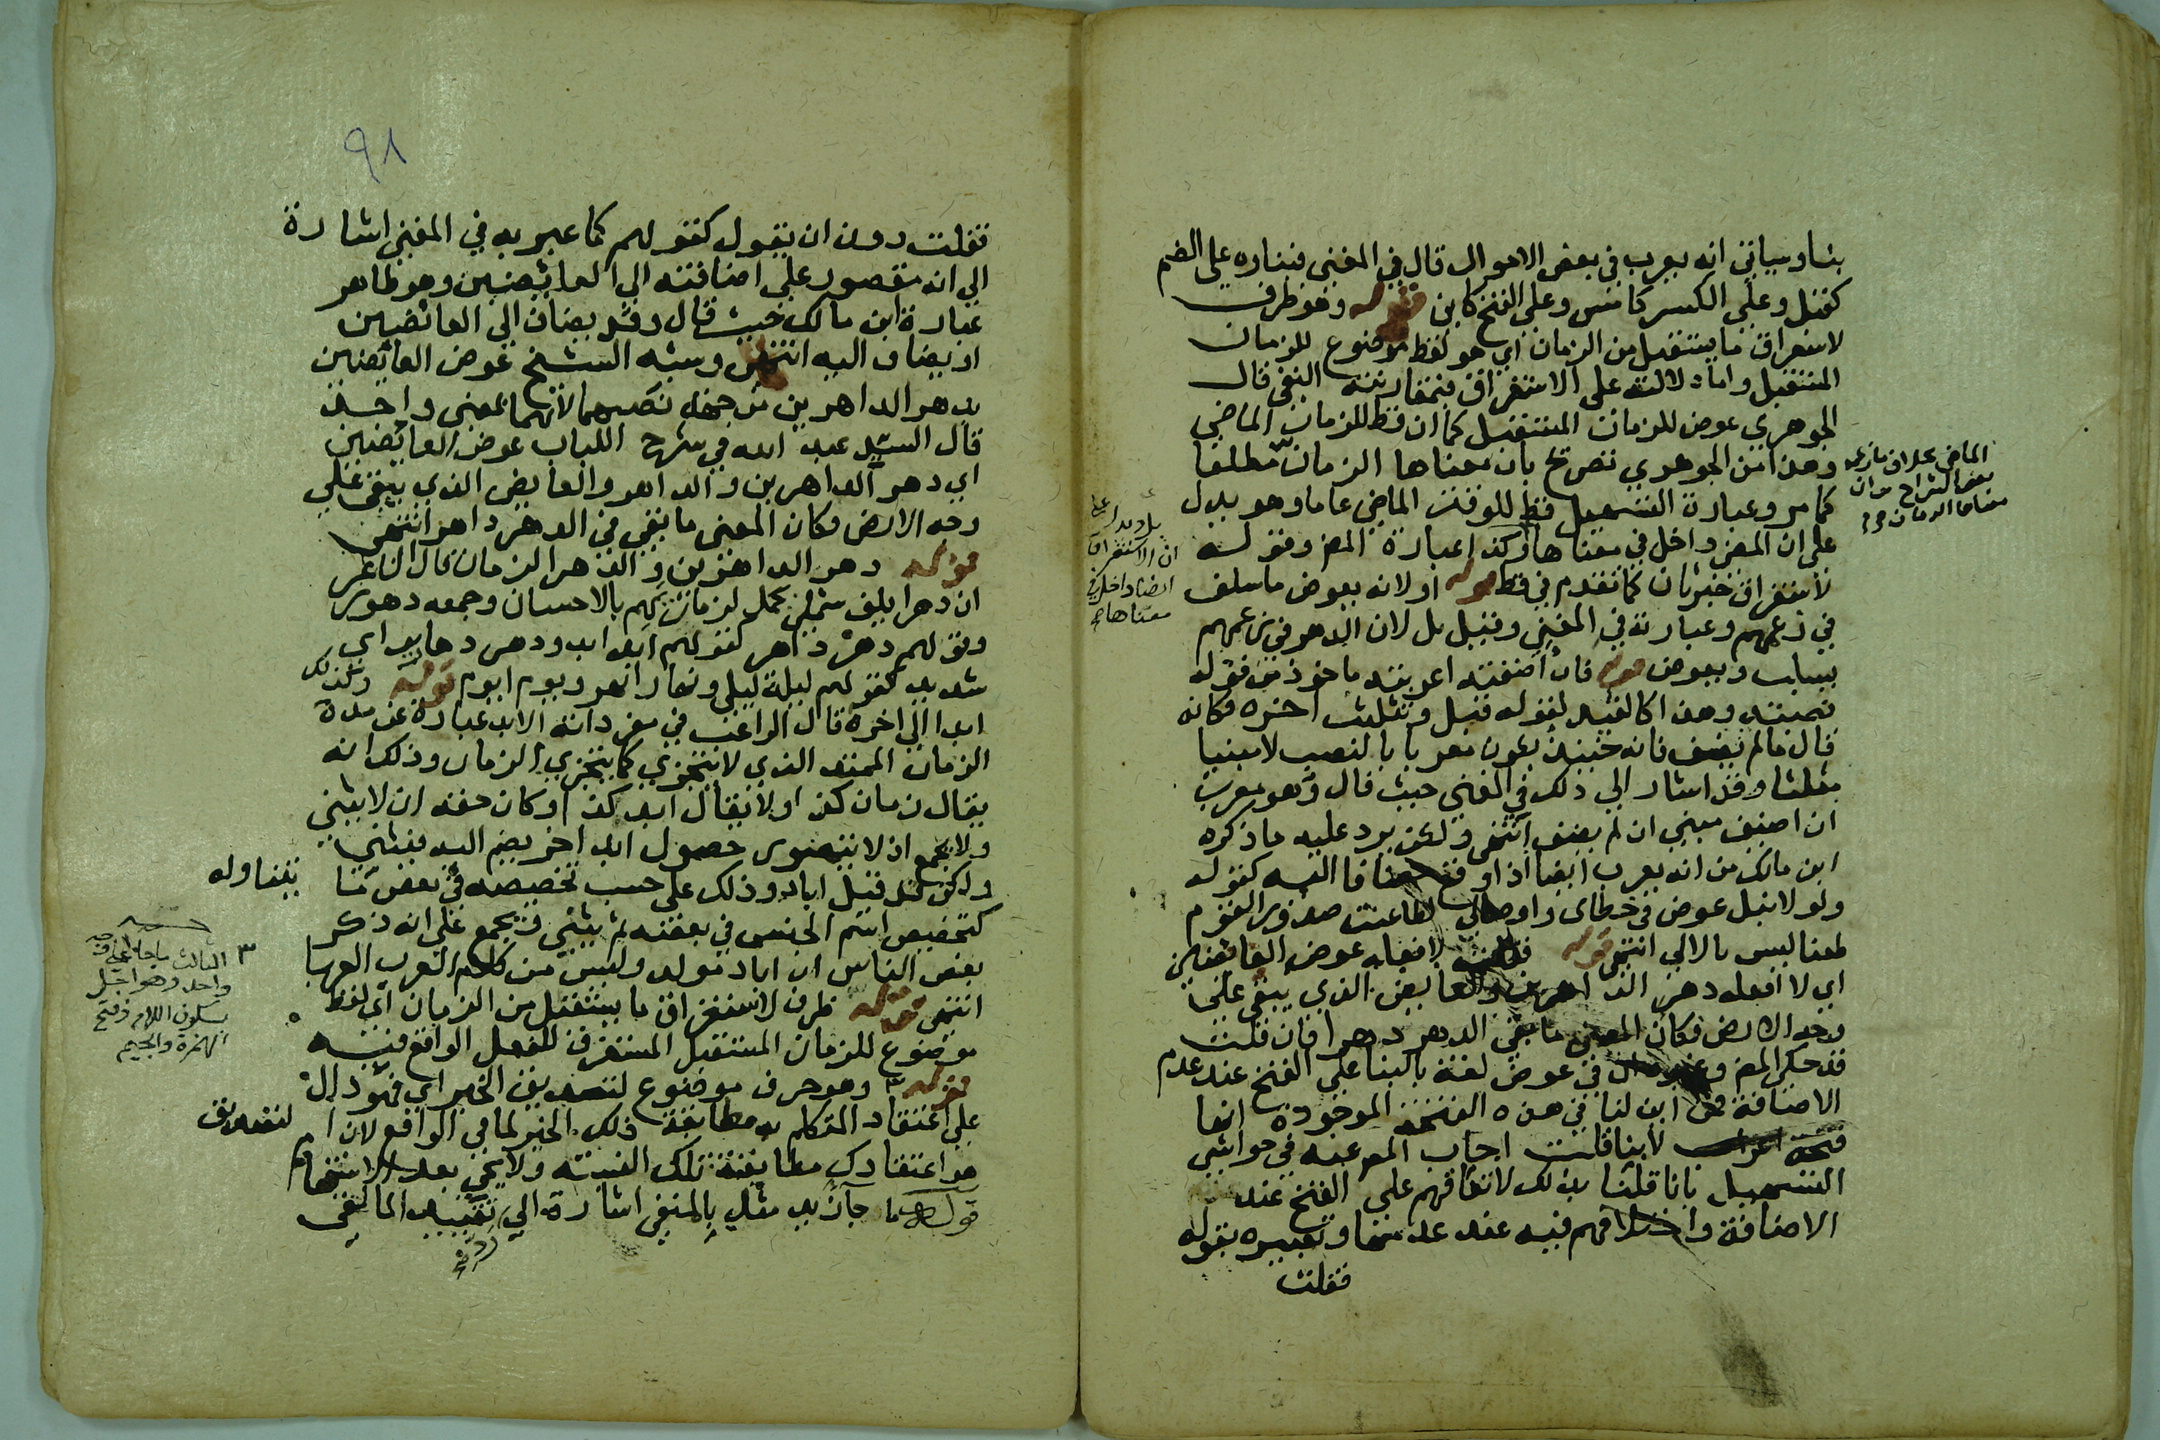 بناء وسياتي انه يعرب في بعض الاحوال قال في المغني فبناوه على الضم
كقبل وعلى الكسر كامس وعلى الفتح كاين قوله وهو ظرف
لاستغراق ما يستقبل من الزمان اي هو لفظ موضوع للزمان
المستقبل واما دلالته على الاستغراق فبمقارنته النفي قال
الجوهري عوض للزمان المستقبل كما ان قط للزمان الماضي
وهذا من الجوهري تصريح بان معناها الزمان مطلقا
كما مر وعبارة التسهيل قط للوقت الماضي عاما وهو يدل
على ان العموم داخل في معناها وكذا عبارة المص وقوله
لاستغراق خبر ثان كما تقدم في قط قوله او لانه يعوض ما سلف
في زعمهم وعبارته في المغني وقيل بل لان الدهر في زعمهم
يسلب ويعوض قوله فان اضفته اعربته ماخوذ من قوله
نصبته وهذا كالقيد لقوله قبل وتثليث اخره فكانه
قال ما لم يضف فانه حينئذ يكون معربا بالنصب لا مبنيا
مثلثا وقد اشار الى ذلك في المغني حيث قال وهو معرب
ان اضيف مبني ان لم يضف انتهى ولكن يرد عليه ما ذكره
ابن مالك من انه يعرب ايضا اذا وقع مضافا اليه كقوله
ولولا نبل عوض في خطاي واوصالي لطاعنت صدور القوم
طعنا ليس بالالي انتهى قوله فقلت لا افعله عوض العائضين
اي لا افعله دهر الداهرين والعايض الذي يبقى على
وجه الارض فكان المعنى ما بقي الدهر دهرا فان قلت
قد حكى المص وغيره ان في عوض لغة بالبنا على الفتح عند عدم
الاضافة فمن اين لنا في هذه الفتحة الموجودة انها
فتحة اعراب لا بنا قلت اجاب المص عنه في حواشي
التسهيل بانا قلنا بذلك لاتفاقهم على الفتح عند
الاضافة واختلافهم فيه عند عدمها وتعبيره بقوله
فقلت
الماضي بخلاف ما زعمه
بعض الشراح من ان
معناها الزمان
ان الاستغراق
ايضا داخل في
معناها
٩٨
فقلت دون ان يقول كقولهم كما عبر به في المغني اشارة
الى انه مقصور على اضافته الى العايضين وهو ظاهر
عبارة ابن مالك حيث قال وقد يضاف الى العائضين
او يضاف اليه انتهى وشبه الشيخ عوض العايضين
بدهر الداهرين من جهة نصبهما لانهما بمعنى واحد
قال السيد عبد الله في شرح اللباب عوض العايضين
اي دهر الداهرين والداهر والعايض الذي يبقى على
وجه الارض فكان المعنى ما بقي في الدهر داهر انتهى
قوله دهر الداهرين والدهر الزمان قال الشاعر
ان دهرا يلف شملي بجمل لزمان يهم بالاحسان وجمعه دهور
وقولهم دهر داهر كقولهم ابد ابد ودهر دهارير اي
شديد كقولهم ليلة ليلى ونهار انهر ويوم ايوم قوله وكذلك
ابدا الى اخره قال الراغب في مفرداته الابد عبارة عن مدة
الزمان الممتد الذي لا يتجزي كما يتجزي الزمان وذلك انه
يقال زمان كذا ولا يقال ابد كذا وكان حقه ان لا يثنى
ولا يجمع اذ لا يتصور حصول ابد اخر يضم اليه فيثنى
ولكن قد قيل اباد وذلك على حسب تخصيصه في بعض ما يتناوله
كتخصيص اسم الجنس في بعضه ثم يثنى ويجمع على انه ذكر
بعض الناس ان اباد مولد وليس من كلام العرب العربا
انتهى قوله ظرف لاستغراق ما يستقبل من الزمان اي لفظ
موضوع للزمان المستقبل المستغرق للفعل الواقع فيه
قوله وهو حرف موضوع لتصديق الخبر اي فهو دال
على اعتقاد المتكلم به مطابقة ذلك الخبر لما في الواقع لان التصديق
هو اعتقادك مطابقة تلك النسبة ولا يجي بعد الاستفهام
قوله ما جا زيد مثل بالمنفي اشارة الى تقييد المالقي
٣ الثالث ما جا على وجه
واحد وهو اجل
بسكون اللام وفتح
الهمزة والجيم